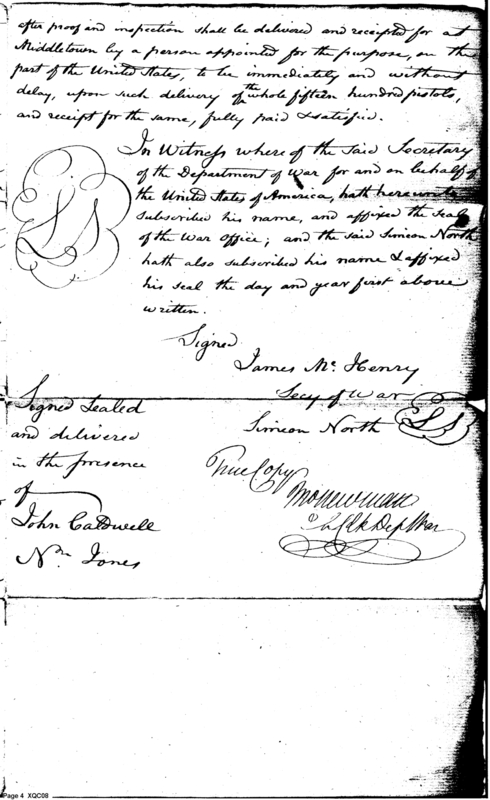 after proof and inspection shall be delivered and receipted for at
Middletown by a person appointed for the purpose, on the
part of the United States, to be immediately and without
delay, upon such delivery of the whole fifteen hundred pistols,
and receipt for the same, fully paid & satisfied.
In Witness where of the said Secretary
of the Department of War for and on behalf of
the United States of America, hath hereunto
subscribed his name, and affixed the seal
of the War Office; and the said Simeon North
hath also subscribed his name & affixed
his seal the day and year first above
written.
LS
Signed
James Mc. Henry
Secy of War
Simeon North LS
Signed Sealed
and delivered
in the presence
of
John Caldwell
Nm Jones
True Copy
Newman
Clk Dep War
Page 4 XQC08